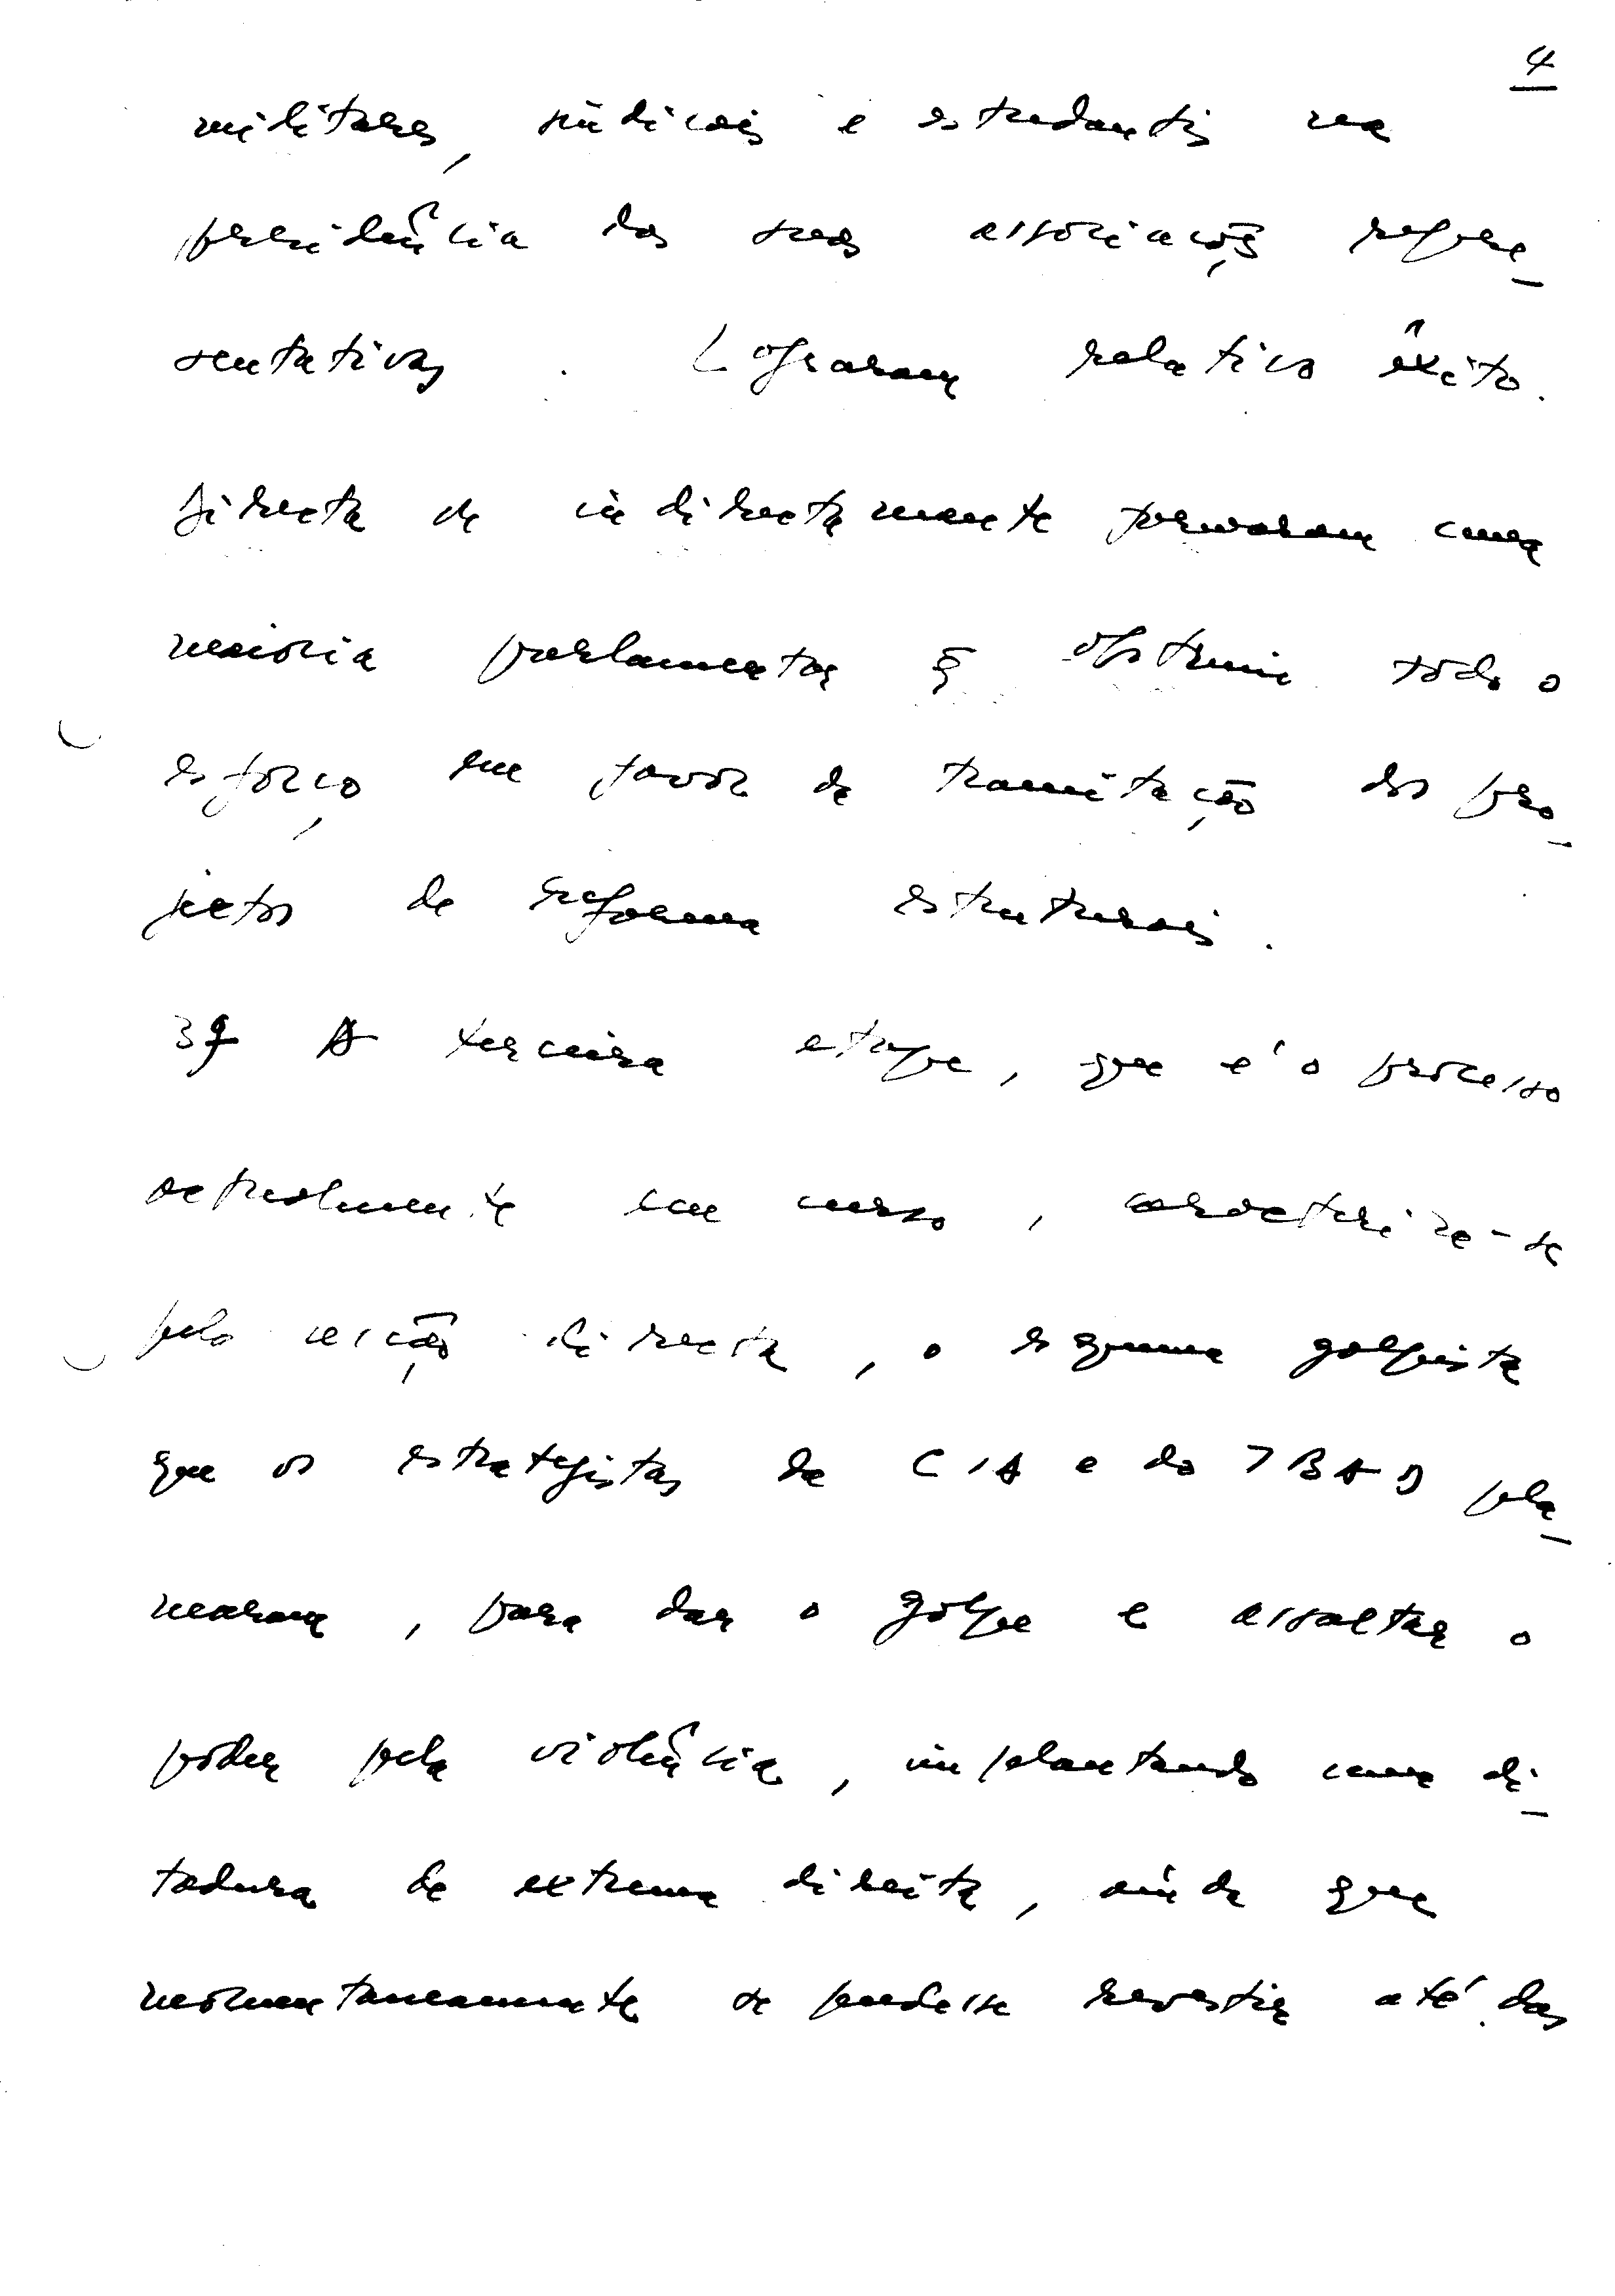 4
militares, sindicais e estudantis na
presidência das suas associações repre-
sentativas. Lograram relativo êxito.
Directa ou indirectamente formaram uma
maioria parlamentar q̃ obstruiu todo o
esforço em favor da tramitação dos pro-
jectos de reforma estruturais.
3ª A terceira etape, que é o processo
actualmente em curso, caracteriza-se
pela acção directa, o esquema golpista
que os estrategistas da CIA e do IBAD pla-
nearam, para dar o golpe e assaltar o
poder pela violência, implantando uma di-
tadura de extrema direita, ainda que
momentaneamente se pudesse revestir até das